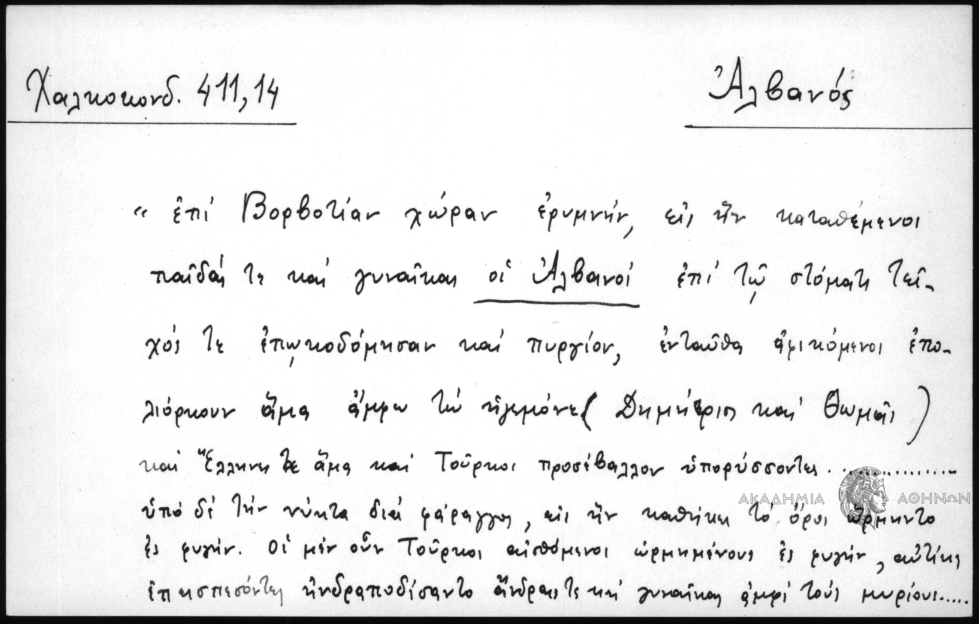 Χαλκοκονδ. 411,14
Ἀλβανός
“ ἐπί Βορβοτίαν χώραν ἐρυμνήν, εἰς ἥν καταθέμενοι
παῖδάς τε καί γυναῖκας οἱ Ἀλβανοί ἐπί τῷ στόματι τεῖ-
χός τε ἐπῳκοδόμησαν καί πυργίον, ἐνταῦθα ἀφικόμενοι ἐπο-
λιόρκουν ἅμα ἄμφω τώ ἡγεμόνε (Δημήτριος καί Θωμᾶς)
καί Ἕλληνές τε ἅμα καί Τοῦρκοι προσέβαλλον ὑπορύσσοντες..............
ὑπό δέ τήν νύκτα διά φάραγγος, εἰς ἥν καθήκει τό ὄρος ὥρμηντο
ἐς φυγήν. Οἱ μέν οὖν Τοῦρκοι αἰσθόμενοι ὡρμημένους ἐς φυγήν, αὐτίκα
ἐπεισπεσόντες ἠνδραποδίσαντο ἄνδρας τε καί γυναῖκας ἀμφί τούς μυρίους.....
ΑΚΑΔΗΜΙΑ ΑΘΗΝΩΝ